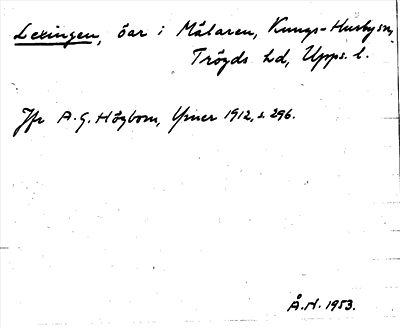 Lexingen, öar i Mälaren, Kungs-Husby sn,
Trögds hd, Upps. l.
Jfr A.G. Högbom, Ymer 1912, s. 296.
Å.H. 1953.